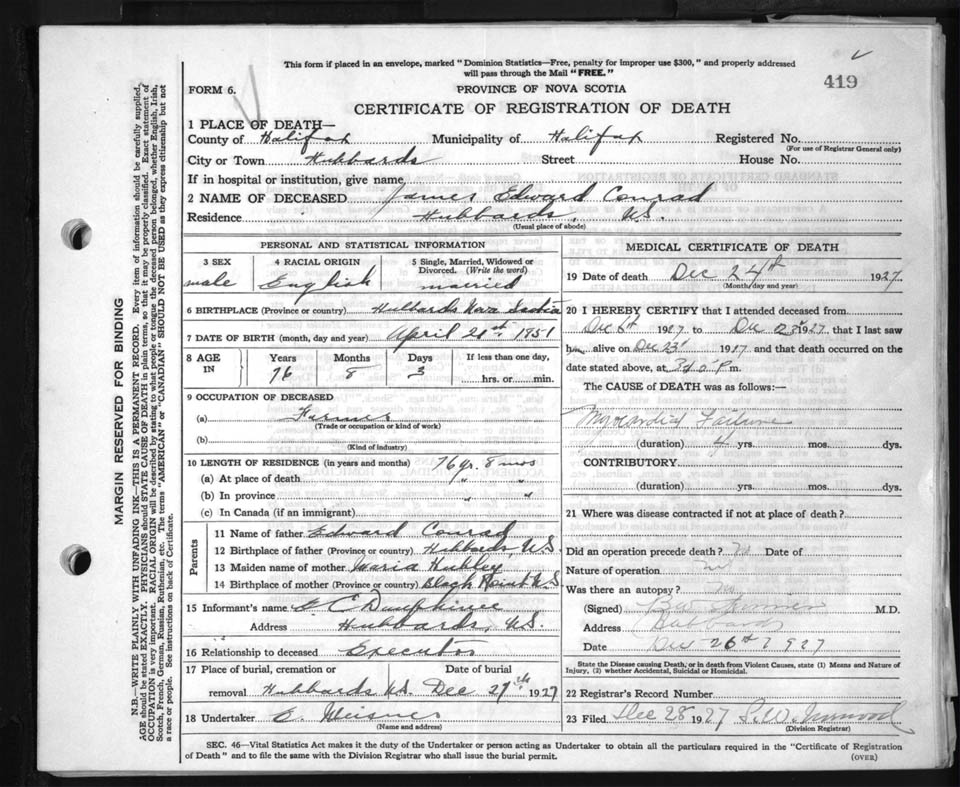 This form if placed in an envelope, marked "Dominion Statistics—Free, penalty for improper use $300," and properly addressed
will pass through the Mail "FREE."
419
FORM 6.
PROVINCE OF NOVA SCOTIA
CERTIFICATE OF REGISTRATION OF DEATH
1 PLACE OF DEATH—
County of Halifax Municipality of Halifax Registered No.
(For use of Registrar General only)
City or Town Hubbards Street House No.
If in hospital or institution, give name
2 NAME OF DECEASED James Edward Conrad
Residence Hubbards, N.S.
(Usual place of abode)
PERSONAL AND STATISTICAL INFORMATION
3 SEX 4 RACIAL ORIGIN 5 Single, Married, Widowed or
Divorced. (Write the word)
male English married
6 BIRTHPLACE (Province or country) Hubbards Nova Scotia
7 DATE OF BIRTH (month, day and year) April 21st 1851
8 AGE IN Years Months Days If less than one day,
76 8 3 hrs. or min.
9 OCCUPATION OF DECEASED
(a) Farmer
(Trade or occupation or kind of work)
(b)
(Kind of industry)
10 LENGTH OF RESIDENCE (in years and months) 76 yr. 8 mos
(a) At place of death " "
(b) In province " "
(c) In Canada (if an immigrant)
Parents
11 Name of father Edward Conrad
12 Birthplace of father (Province or country) Hubbards N.S
13 Maiden name of mother Maria Hubley
14 Birthplace of mother (Province or country) Black Point N.S
15 Informant's name E C Dauphinee
Address Hubbards, N.S.
16 Relationship to deceased Executor
17 Place of burial, cremation or Date of burial
removal Hubbards N.S. Dec 27th 1927
18 Undertaker E. Meisner
(Name and address)
MEDICAL CERTIFICATE OF DEATH
19 Date of death Dec 24th 1927
(Month, day and year)
20 I HEREBY CERTIFY that I attended deceased from
Dec 6th 1927 to Dec 23 1927, that I last saw
him alive on Dec 23d 1917 and that death occurred on the
date stated above, at P.m.
The CAUSE of DEATH was as follows:—
Myocardial Failure
(duration) 4 yrs. mos. dys.
CONTRIBUTORY
(duration) yrs. mos. dys.
21 Where was disease contracted if not at place of death?
Did an operation precede death? No Date of
Nature of operation
Was there an autopsy? No
(Signed) M.D.
Address Hubbards
Date Dec 26th 1927
State the Disease causing Death, or in death from Violent Causes, state (1) Means and Nature of
Injury, (2) whether Accidental, Suicidal or Homicidal.
22 Registrar's Record Number
23 Filed Dec 28 1927
(Division Registrar)
SEC. 46—Vital Statistics Act makes it the duty of the Undertaker or person acting as Undertaker to obtain all the particulars required in the "Certificate of Registration
of Death" and to file the same with the Division Registrar who shall issue the burial permit.
(OVER)
MARGIN RESERVED FOR BINDING
N.B.—WRITE PLAINLY WITH UNFADING INK—THIS IS A PERMANENT RECORD. Every item of information should be carefully supplied,
AGE should be stated EXACTLY. PHYSICIANS should STATE CAUSE OF DEATH in plain terms, so that it may be properly classified. Exact statement of
OCCUPATION is very important. RACIAL ORIGIN will be described by stating to what people or tongue the deceased person belonged, whether English, Irish,
Scotch, French, German, Russian, Ruthenian, etc. The terms "AMERICAN" or "CANADIAN" SHOULD NOT BE USED as they express citizenship but not
a race or people. See instructions on back of Certificate.